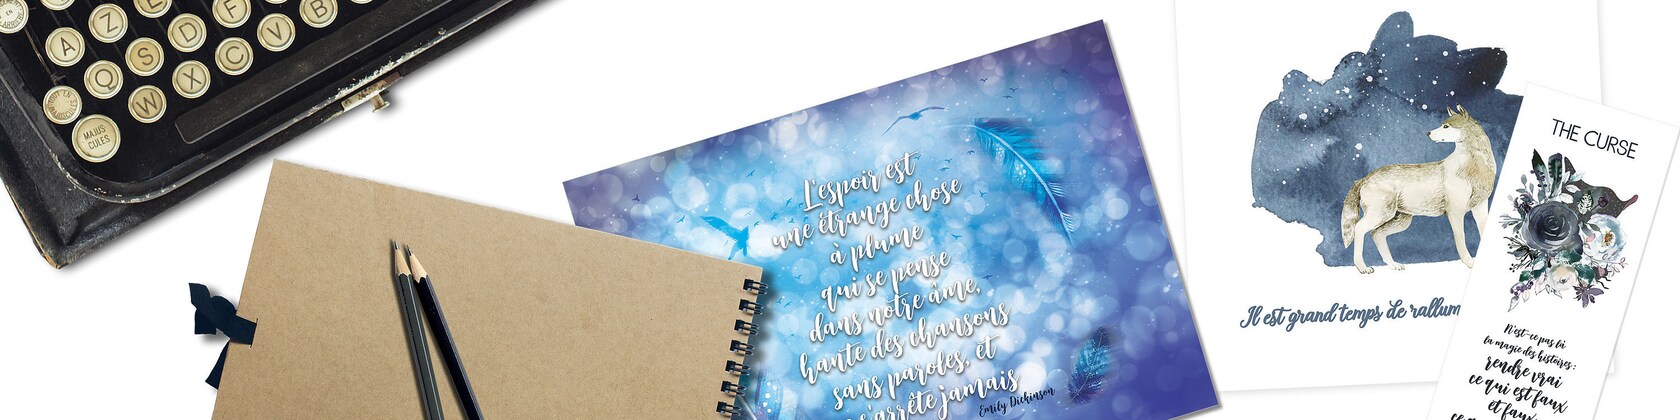 E F
A Z D B
Q S C V
W X
MAJUS
CULES
L'espoir est
une étrange chose
à plume
qui se pense
dans notre âme,
hante des chansons
sans paroles, et
arrête jamais
Emily Dickinson
Il est grand temps de rallum
THE CURSE
N'est-ce pas là
la magie des histoires :
rendre vrai
ce qui est faux
et faux